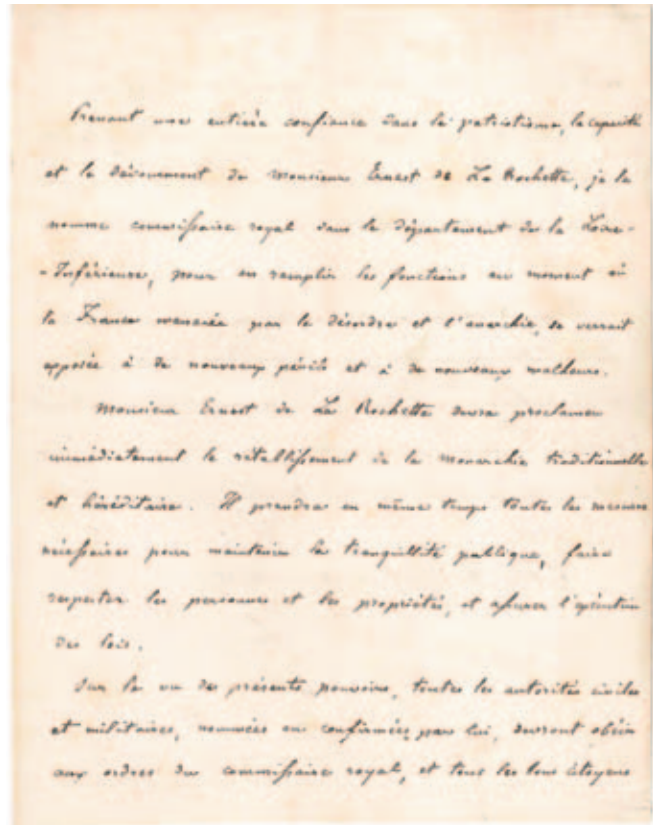 Prenant une entière confiance dans le patriotisme, la capacité
et le dévouement de Monsieur Ernest de La Rochette, je le
nomme commissaire royal dans le département de la Loire-
-Inférieure, pour en remplir les fonctions au moment où
la France menacée par le désordre et l'anarchie, se verrait
exposée à de nouveaux périls et à de nouveaux malheurs.
Monsieur Ernest de La Rochette devra proclamer
immédiatement le rétablissement de la monarchie traditionnelle
et héréditaire. Il prendra en même temps toutes les mesures
nécessaires pour maintenir la tranquillité publique, faire
respecter les personnes et les propriétés, et assurer l'exécution
des lois.
Sur le vu des présents pouvoirs, toutes les autorités civiles
et militaires, nommées ou confirmées par lui, devront obéir
aux ordres du commissaire royal, et tous les bons citoyens